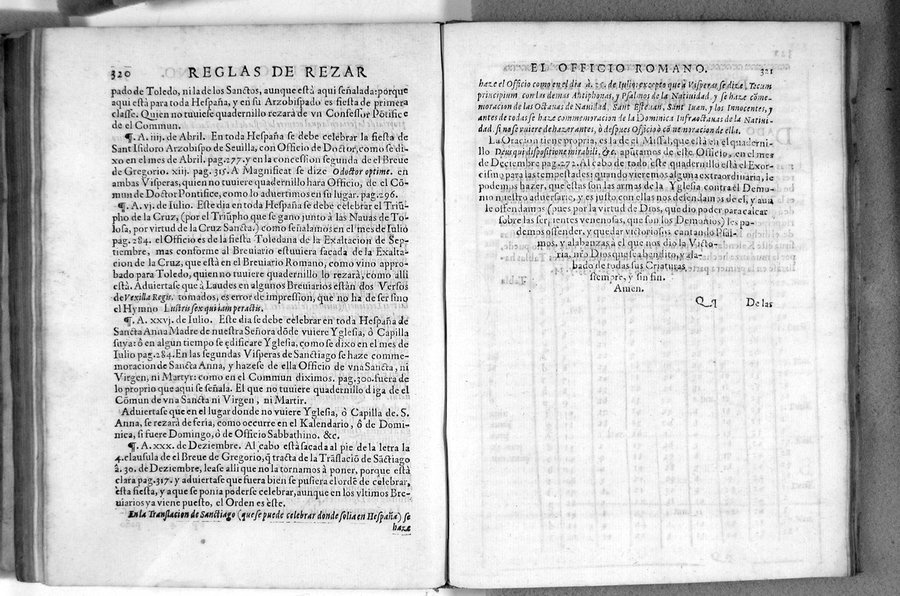 320 REGLAS DE REZAR
pado de Toledo, ni la de los Sanctos, aunque está aqui señalada: porque
aqui està para toda Hespaña, y en su Arzobispado es fiesta de primera
classe. Quien no tuuiese quadernillo rezará de vn Confessor Pontifice
de el Commun.
¶. A. iiij. de Abril. En toda Hespaña se debe celebrar la fiesta de
Sant Isidoro Arzobispo de Seuilla, con Officio de Doctor, como se di-
xo en el mes de Abril. pag. 277. y en la concession segunda de el Breue
de Gregorio. xiij. pag. 315. A Magnificat se dize O doctor optime. en
ambas Visperas, quien no tuuiere quadernillo hara Officio, de el Cō-
mun de Doctor Pontifice, como lo aduertimos en su lugar. pag. 296.
¶. A. vj. de Iulio. Este dia en toda Hespaña se debe celebrar el Triũ-
pho de la Cruz, (por el Triũpho que se gano junto à las Nauas de To-
losa, por virtud de la Cruz Sancta.) como señalamos en el mes de Iulio
pag. 284. el Officio es de la fiesta Toledana de la Exaltacion de Sep-
tiembre, mas conforme al Breuiario estuuiera sacada de la Exalta-
cion de la Cruz, que està en el Breuiario Romano, como vino appro-
bado para Toledo, quien no tuuiere quadernillo lo rezará, como alli
està. Aduiertase que à Laudes en algunos Breuiarios estàn dos Versos
de Vexilla Regis. tomados, es error de impression, que no ha de ser sino
el Hymno Lustris sex qui iam peractis.
¶. A. xxvj. de Iulio. Este dia se debe celebrar en toda Hespaña de
Sancta Anna Madre de nuestra Señora dōde vuiere Yglesia, ò Capilla
suya: ò en algun tiempo se edificare Yglesia, como se dixo en el mes de
Iulio pag. 284. En las segundas Visperas de Sanctiago se haze comme-
moracion de Sancta Anna, y hazese de ella Officio de vna Sancta, ni
Virgen, ni Martyr: como en el Commun diximos. pag. 300. fuera de
lo proprio que aqui se señala. El que no tuuiere quadernillo diga de el
Cōmun de vna Sancta ni Virgen, ni Martir.
Aduiertase que en el lugar donde no vuiere Yglesia, ò Capilla de S.
Anna, se rezará de feria, como occurre en el Kalendario, ò de Domi-
nica, si fuere Domingo, ò de Officio Sabbathino. &c.
¶. A. xxx. de Deziembre. Al cabo està sacada al pie de la letra la
4. clausula de el Breue de Gregorio, q̃ tracta de la Traslaciō de Sāctiago
à. 30. de Deziembre, lease alli que no la tornamos à poner, porque está
clara pag. 317. y aduiertase que fuera bien se pusiera el ordē de celebrar,
esta fiesta, y a que se ponia poderse celebrar, aunque en los vltimos Bre-
uiarios ya viene puesto, el Orden es este.
En la Translacion de Sanctiago (que se puede celebrar donde solia en Hespaña) se
haze
EL OFFICIO ROMANO. 321
haze el Officio como en el dia à. 25. de Iulio: excepto que à Visperas se dize, Tecum
principium. con las demas Antiphonas, y Psalmos de la Natiuidad. y se haze cōme-
moracion de las Octauas de Nauidad, Sant Esteuan, Sant Iuan, y los Innocentes, y
antes de todas se haze commemoracion de la Dominica Infraoctauas de la Natiui-
dad. si na se vuiere de hazer antes, ò despues Officio ò cōmemoracion de ella.
La Oracion tiene propria, es la de el Missal, que està en el quaderni-
llo Deus qui dispositione mirabili, &c. apūtamos de este Officio, en el mes
de Deziembre pag. 272. Al cabo de todo este quadernillo està el Exor-
cismo para las tempestades; quando vieremos alguna extraordinaria, le
podemos hazer, que estas son las armas de la Yglesia contra el Demo-
nio nuestro aduersario, y es justo con ellas nos defendamos de el, y aun
le offendamos (pues por la virtud de Dios, que dio poder para calcar
sobre las serpientes venenosas, que son los Demonios) les po-
demos offender, y quedar victoriosos cantando Psal-
mos, y alabanzas à el que nos dio la Victo-
ria. nr̃o Dios que sea bendito, y ala-
bado de todas sus Criaturas
siempre, y sin fin.
Amen.
De las